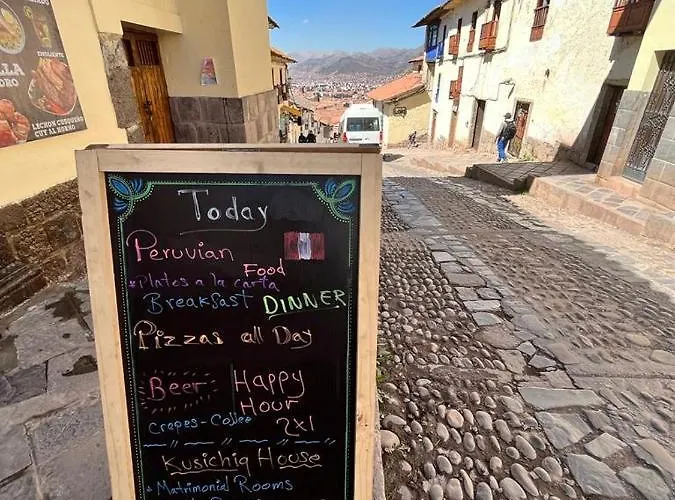 LECHON CUSQUEÑO
CUY AL HORNO
Today
Peruvian
Food
*Plates a la carta
Breakfast DINNER
Pizzas all Day
Beer Happy
Hour
Crepes-Coffee 2x1
Kusichiq House
*Matrimonial Rooms